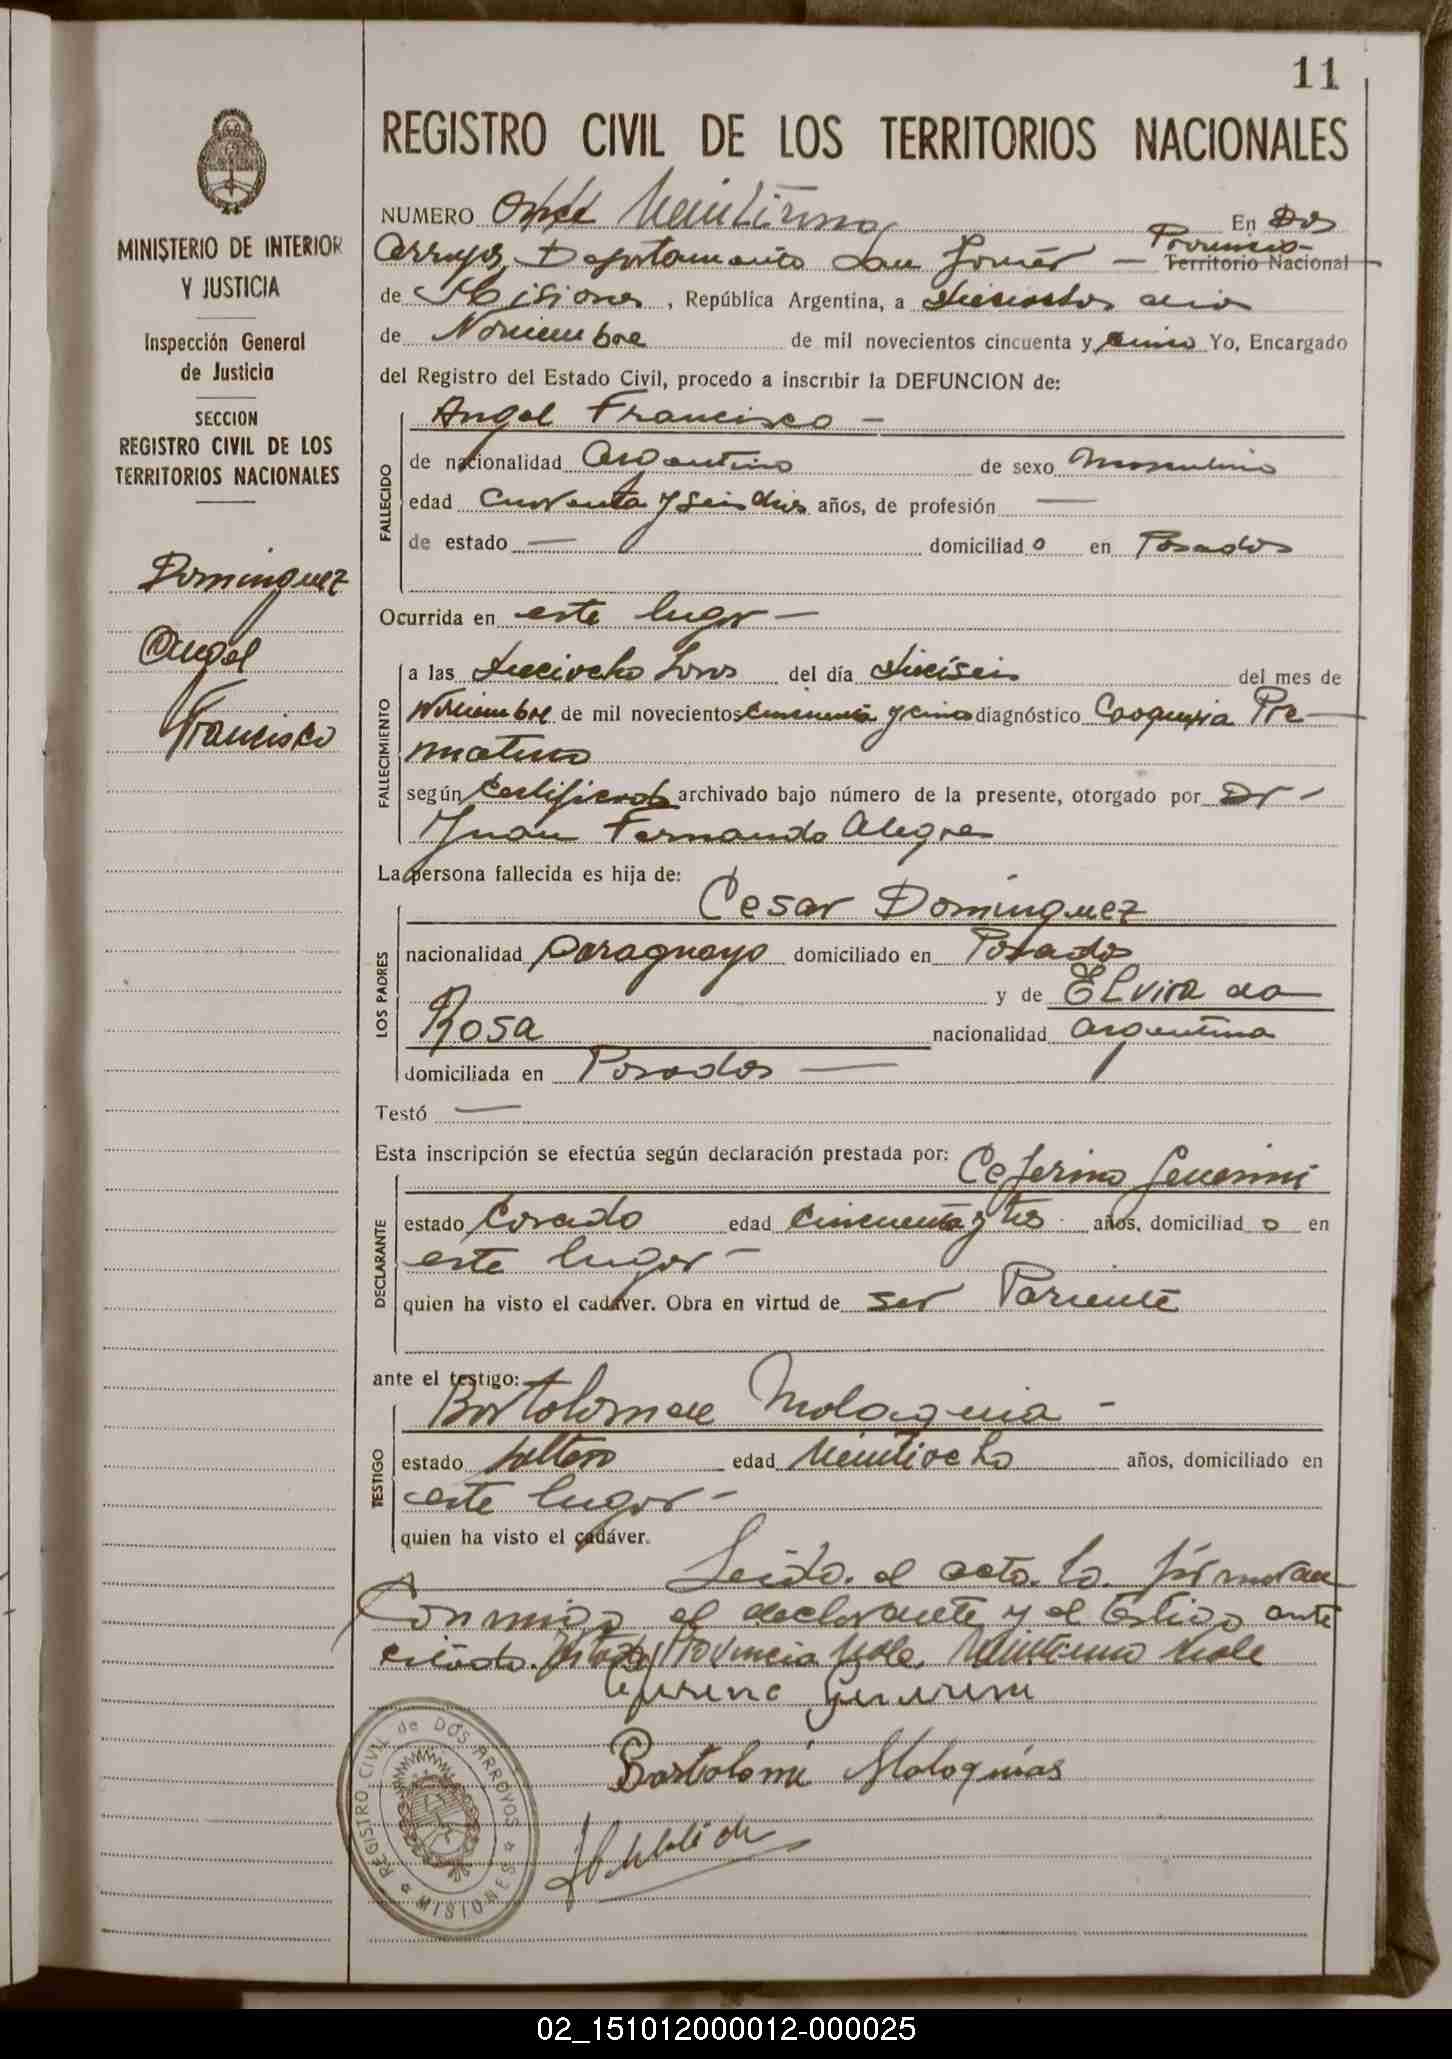 11
REGISTRO CIVIL DE LOS TERRITORIOS NACIONALES
MINISTERIO DE INTERIOR
Y JUSTICIA
Inspección General
de Justicia
SECCION
REGISTRO CIVIL DE LOS
TERRITORIOS NACIONALES
Dominguez
Angel
Francisco
NUMERO Veintiuno En Dos
Provincia
Arroyos, Departamento Territorio Nacional
de Misiones, República Argentina, a
de Noviembre de mil novecientos cincuenta y cinco Yo, Encargado
del Registro del Estado Civil, procedo a inscribir la DEFUNCION de:
Angel Francisco —
FALLECIDO
de nacionalidad Argentino de sexo Masculino
edad Cuarenta y seis dias años, de profesión —
de estado — domiciliado en Posadas
Ocurrida en este lugar —
FALLECIMIENTO
a las dieciocho horas del día dieciseis del mes de
Noviembre de mil novecientos cincuenta y cinco diagnóstico Pre-
maturo
según Certificado archivado bajo número de la presente, otorgado por Dr -
Juan Fernando Alegre
La persona fallecida es hija de:
LOS PADRES
Cesar Dominguez
nacionalidad Paraguayo domiciliado en Posadas
y de Elvira da
Rosa nacionalidad Argentina
domiciliada en Posadas —
Testó —
Esta inscripción se efectúa según declaración prestada por:
DECLARANTE
Ceferino
estado Casado edad cincuenta y tres años, domiciliado en
este lugar —
quien ha visto el cadáver. Obra en virtud de ser Pariente
ante el testigo:
TESTIGO
Bartolomé Malaquia -
estado soltero edad Veintiocho años, domiciliado en
este lugar -
quien ha visto el cadáver.
Leida el acta la firmaran
Conmigo el declarante y el testigo ante
citado. Provincia Vale. Veintiuno Vale
Bartolomé Malaquias
REGISTRO CIVIL de DOS ARROYOS
MISIONES
02_151012000012-000025